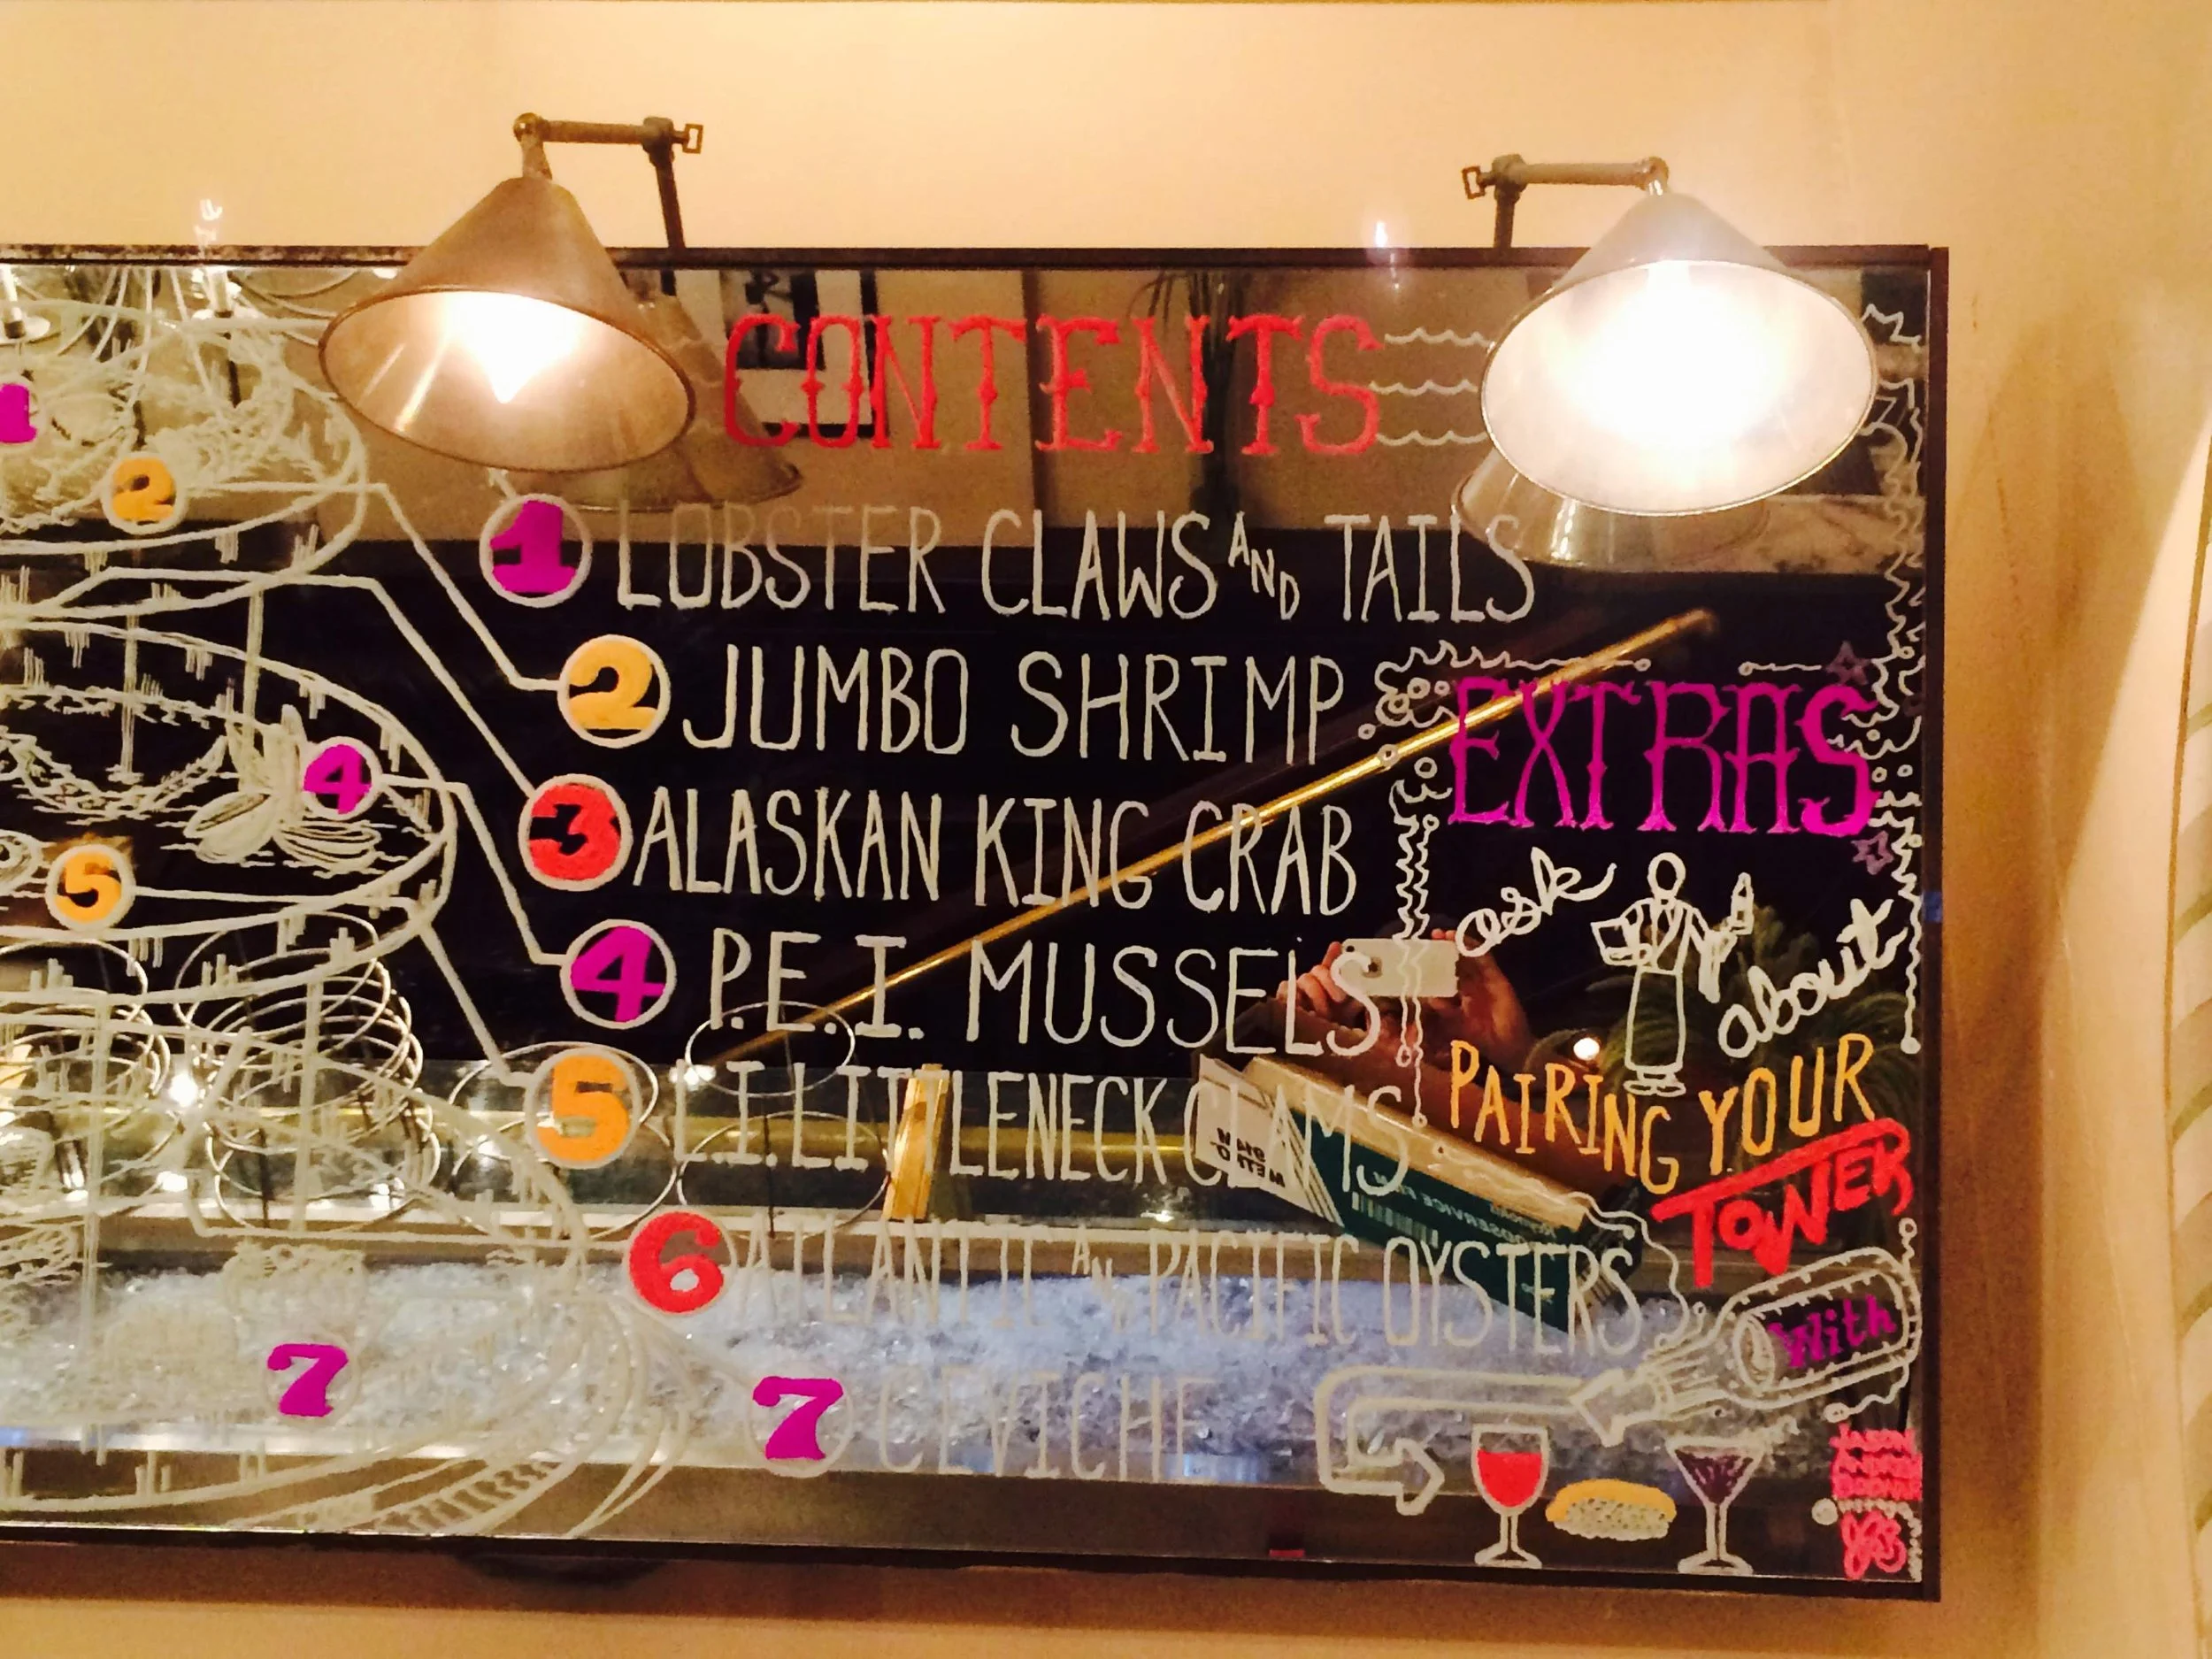 CONTENTS
1 LOBSTER CLAWS AND TAILS
2 JUMBO SHRIMP
3 ALASKAN KING CRAB
4 P.E.I. MUSSELS
5 L.I. LITTLENECK CLAMS
6 ATLANTIC AND PACIFIC OYSTERS
7 CEVICHE
EXTRAS
ask
about
PAIRING YOUR
TOWER
With
1
2
4
5
7